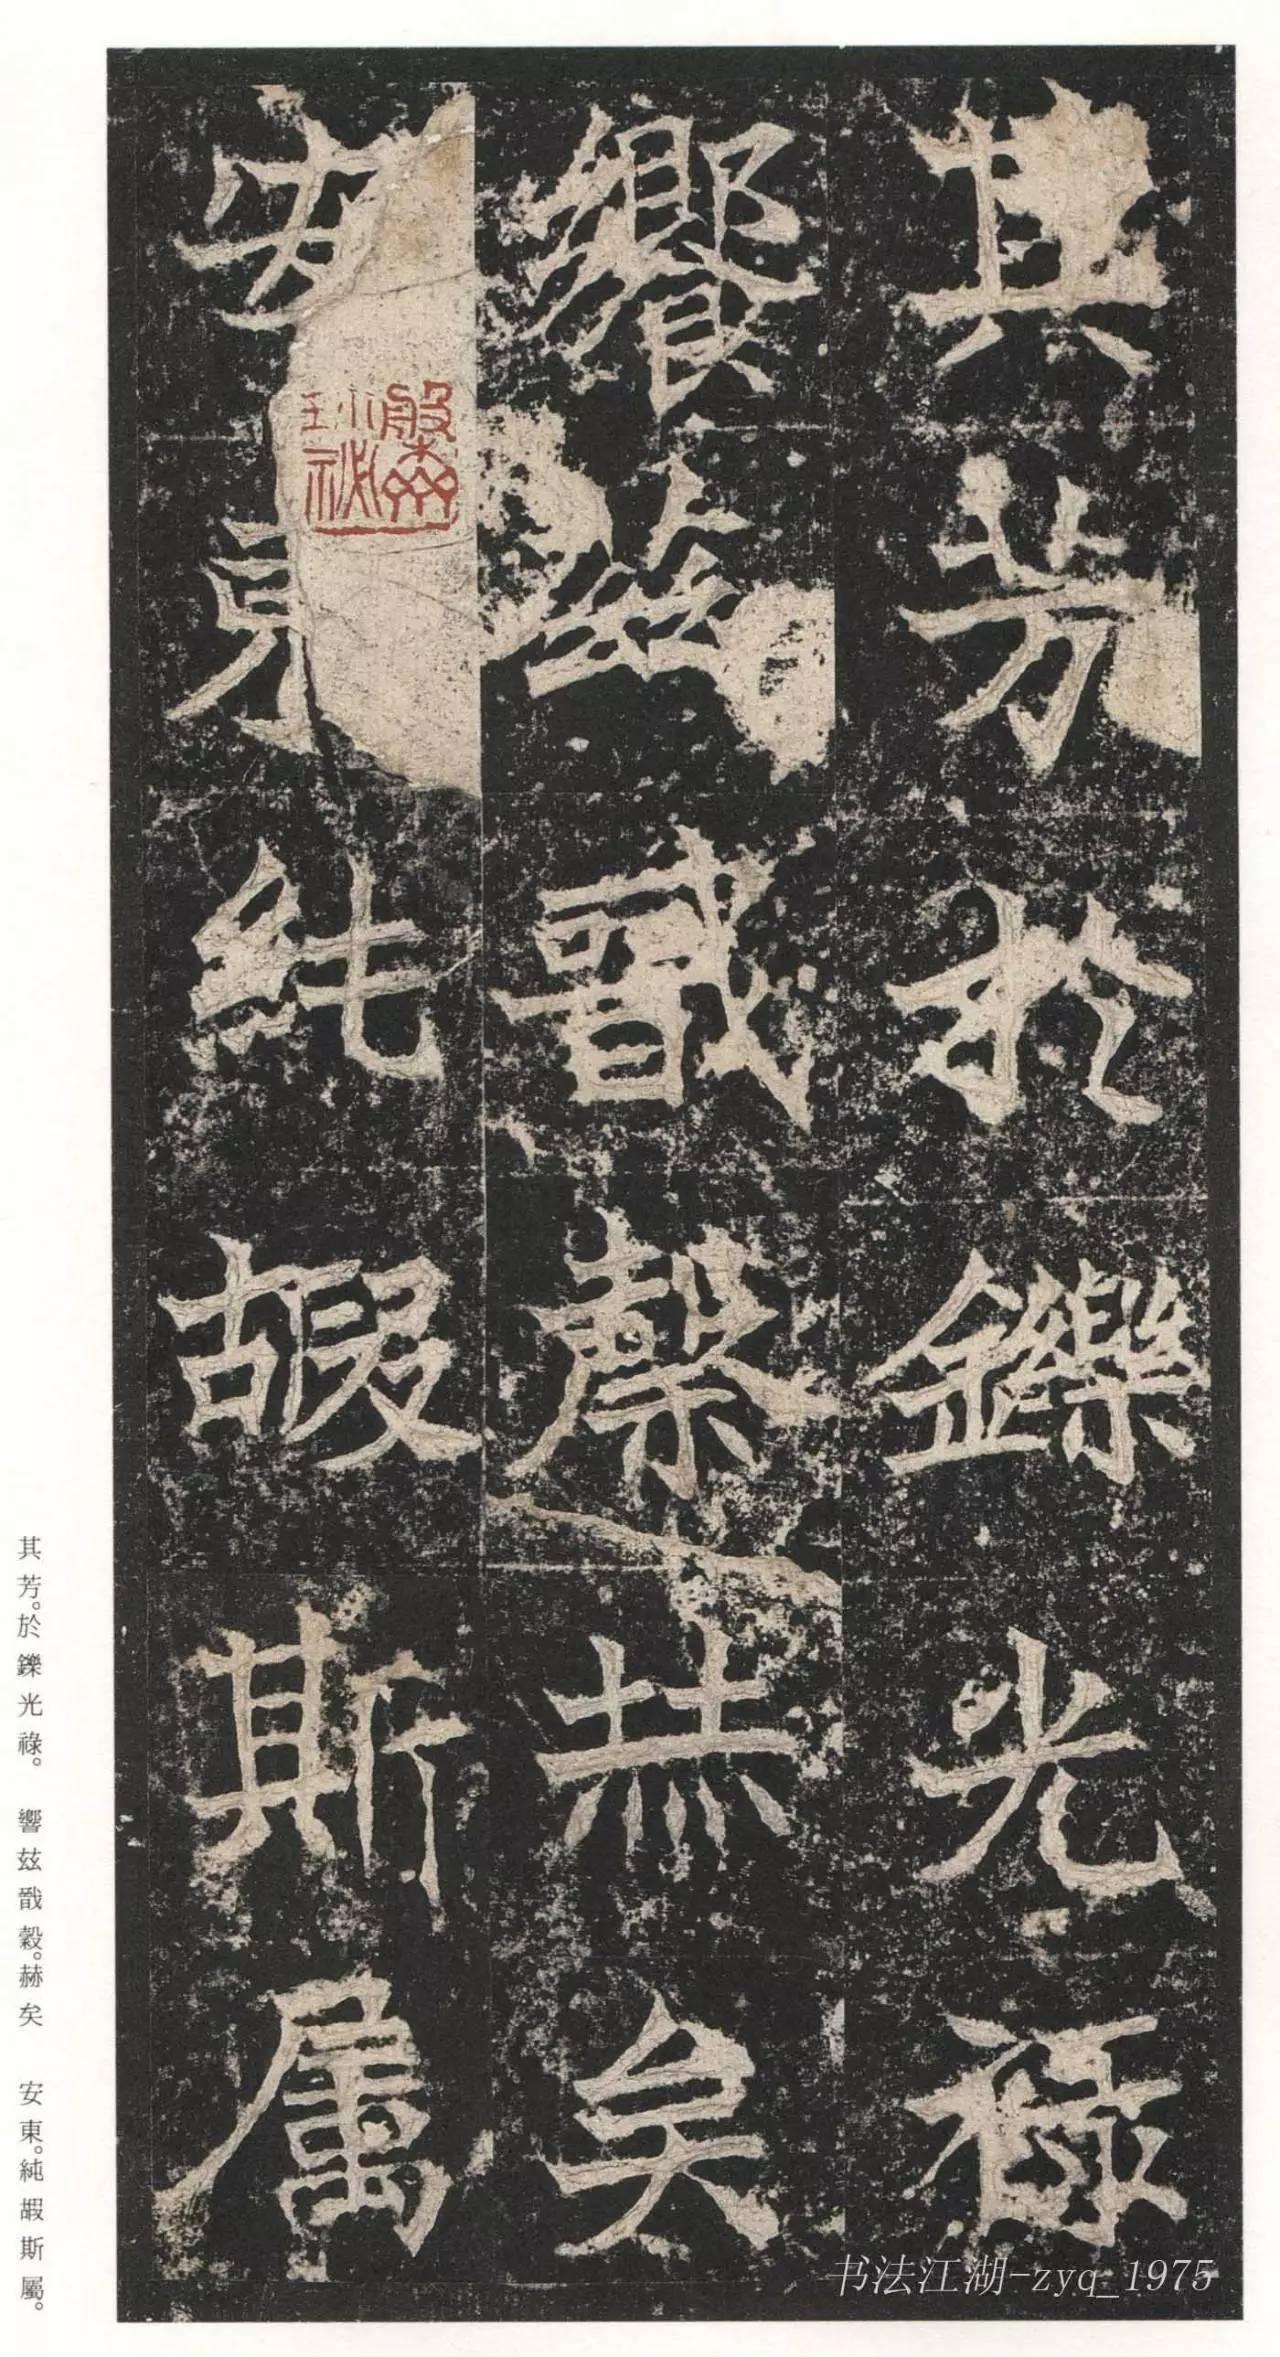 其芳於鑠光祿
響茲戩穀赫矣
安東純嘏斯屬
其芳。於鑠光祿。 響茲戩穀。赫矣 安東。純嘏斯屬。
书法江湖-zyq_1975